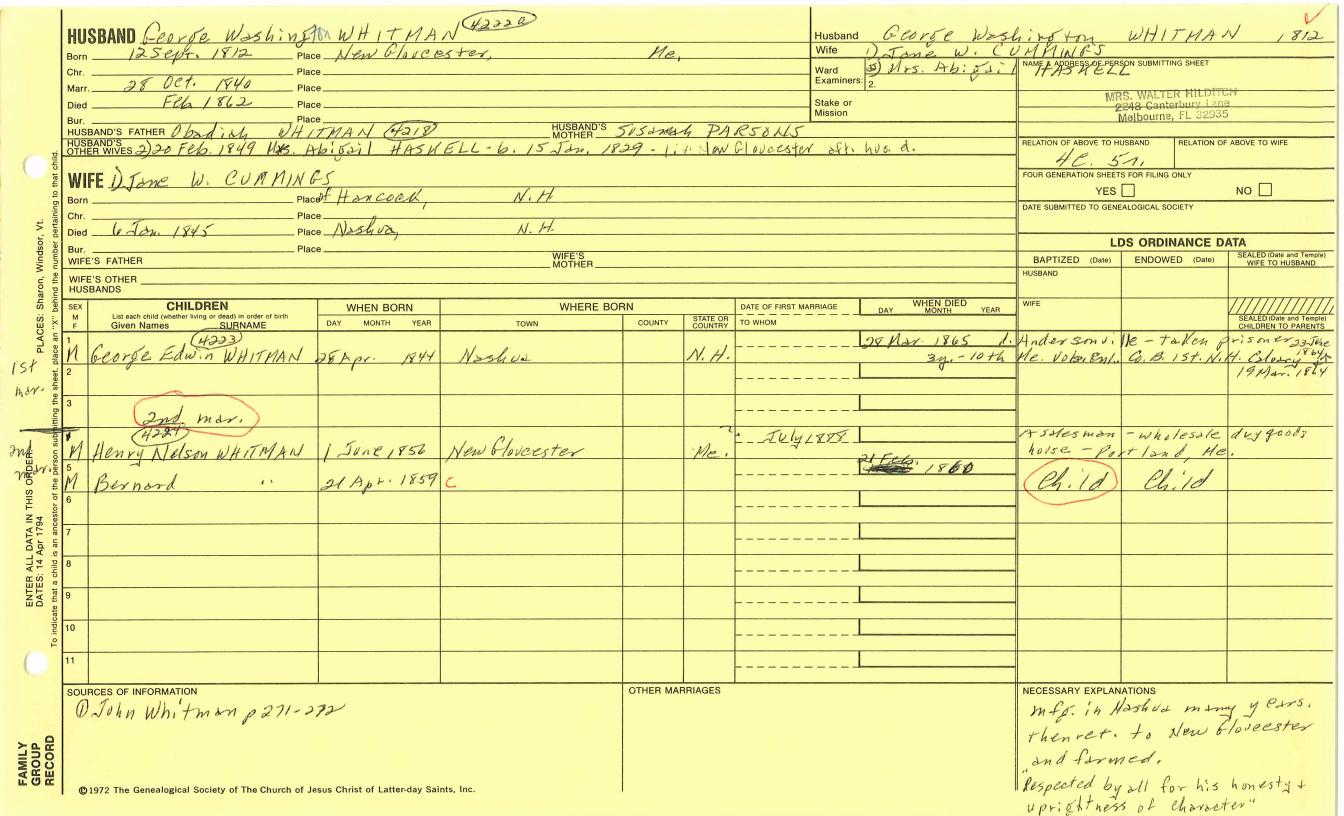 HUSBAND George Washington WHITMAN 4222a
Born 12 Sept. 1812 Place New Gloucester, Me.
Chr. Place
Marr. 28 Oct. 1840 Place
Died Feb 1862 Place
Bur. Place
HUSBAND'S FATHER Obadiah WHITMAN 4218 HUSBAND'S MOTHER Susannah PARSONS
HUSBAND'S OTHER WIVES 2) 20 Feb. 1849 Mrs. Abigail HASKELL - b. 15 Jan. 1829 - New Gloucester aft. hus d.
Husband George Washington WHITMAN 1812
Wife 1) Jane W. CUMMINGS
2) Mrs. Abigail HASKELL
Ward
Examiners:
2.
Stake or
Mission
NAME & ADDRESS OF PERSON SUBMITTING SHEET
MRS. WALTER HILDITCH
2248 Canterbury Lane
Melbourne, FL 32935
RELATION OF ABOVE TO HUSBAND RELATION OF ABOVE TO WIFE
4C. 5r.
FOUR GENERATION SHEETS FOR FILING ONLY
YES NO
DATE SUBMITTED TO GENEALOGICAL SOCIETY
WIFE 1) Jane W. CUMMINGS
Born Place of Hancock, N.H
Chr. Place
Died 6 Jan. 1845 Place Nashua, N.H.
Bur. Place
WIFE'S FATHER WIFE'S MOTHER
WIFE'S OTHER HUSBANDS
LDS ORDINANCE DATA
BAPTIZED (Date) ENDOWED (Date) SEALED (Date and Temple) WIFE TO HUSBAND
HUSBAND
WIFE
SEALED (Date and Temple) CHILDREN TO PARENTS
SEX
M
F
CHILDREN
List each child (whether living or dead) in order of birth
Given Names SURNAME
WHEN BORN
DAY MONTH YEAR
WHERE BORN
TOWN COUNTY STATE OR COUNTRY
DATE OF FIRST MARRIAGE
TO WHOM
WHEN DIED
DAY MONTH YEAR
1st mar.
4223
1 M George Edwin WHITMAN 28 Apr. 1844 Nashua N.H. 28 Mar. 1865 d. Andersonville - taken prisoner 23 June 1864
3y. - 10th Me. Vol. Co. B. 1st. N.H. Calvary
19 Mar. 1864
2
3
2nd. mar.
2nd mar.
4224
M Henry Nelson WHITMAN 1 June 1856 New Gloucester Me. July 1888 A salesman - wholesale dry goods
house - Portland, Me.
5 M Bernard " 21 Apr. 1859 C 21 Feb. 1860 Child Child
6
7
8
9
10
11
SOURCES OF INFORMATION
① John Whitman p 271-272
OTHER MARRIAGES
NECESSARY EXPLANATIONS
mfg. in Nashua many years.
then ret. to New Gloucester
and farmed.
"Respected by all for his honesty +
uprightness of character"
©1972 The Genealogical Society of The Church of Jesus Christ of Latter-day Saints, Inc.
FAMILY
GROUP
RECORD
ENTER ALL DATA IN THIS ORDER:
DATES: 14 Apr 1794
PLACES: Sharon, Windsor, Vt.
To indicate that a child is an ancestor of the person submitting the sheet, place an "X" behind the number pertaining to that child.